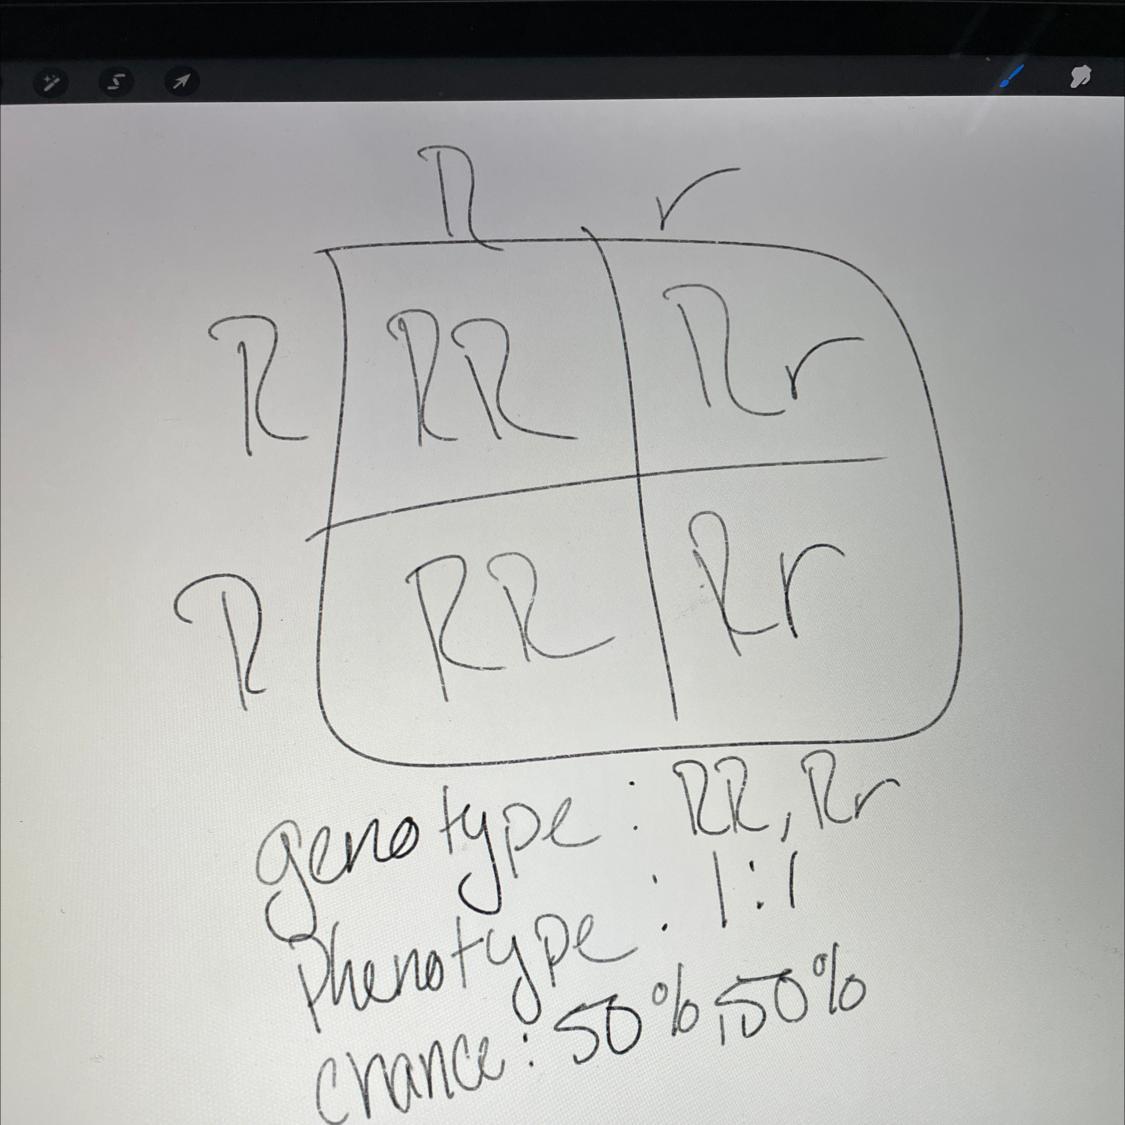 R r
R RR Rr
R RR Rr
genotype: RR, Rr
Phenotype: 1:1
chance: 50%, 50%